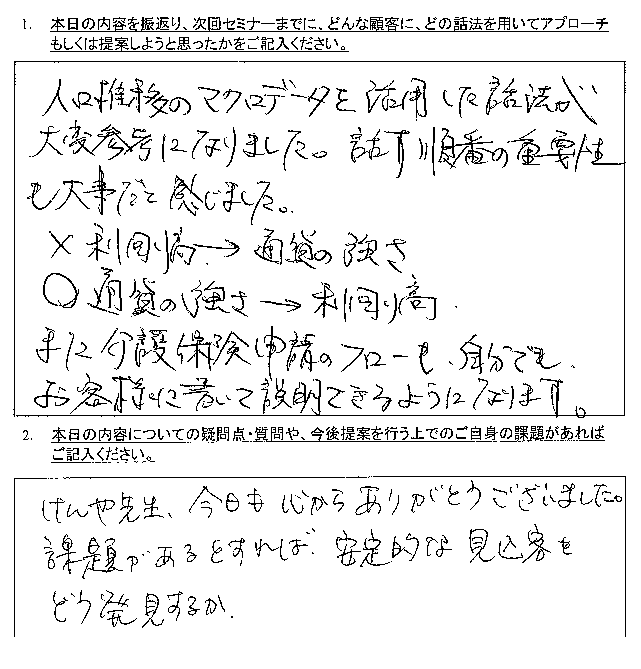 1. 本日の内容を振返り、次回セミナーまでに、どんな顧客に、どの話法を用いてアプローチ
もしくは提案しようと思ったかをご記入ください。
人口推移のマクロデータを活用した話法が
大変参考になりました。話す順番の重要性
も大事だと感じました。
× 利回り高 → 通貨の強さ
○ 通貨の強さ → 利回り高
また介護保険申請のフローも、自分でも、
お客様に書いて説明できるようになります。
2. 本日の内容についての疑問点・質問や、今後提案を行う上でのご自身の課題があれば
ご記入ください。
けんや先生、今日も心からありがとうございました。
課題があるとすれば、安定的な見込客を
どう発見するか.